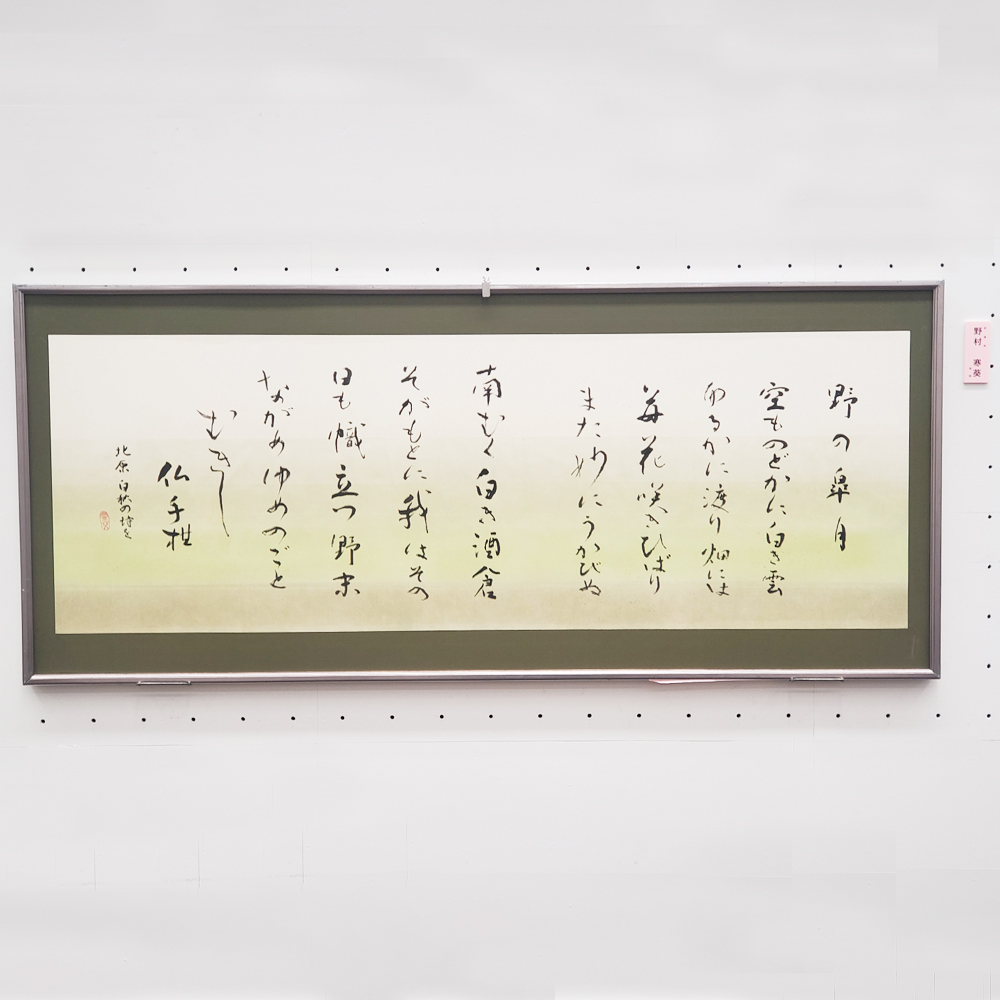 野の皐月
空ものどかに白き雲
るかに渡り畑には
苺花咲きひばり
また妙にうかびぬ
南むく白き酒倉
そがもとに我はその
日も幟立つ野末
ながめゆめのごと
むきし
仏手柑
北原白秋の詩を
野村 寒葵